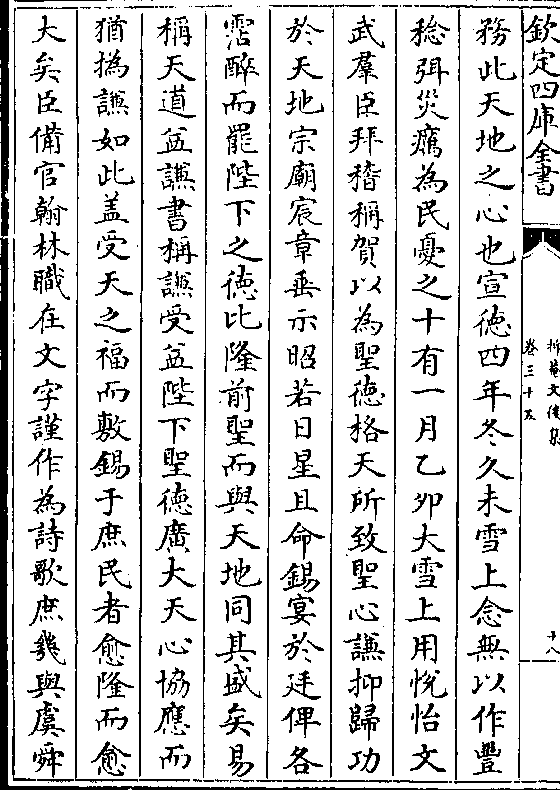 欽定四庫全書
卷三十五
十八
務此天地之心也宣徳四年冬久未雪上念無以作豐
稔弭災癘為民憂之十有一月乙夘大雪上用悅怡文
武羣臣拜稽稱賀以為聖徳格天所致聖心謙抑歸功
於天地宗廟宸章垂示昭若日星且命錫宴於廷俾各
霑醉而罷陛下之徳比隆前聖而與天地同其盛矣易
稱天道益謙書稱謙受益陛下聖徳廣大天心協應而
猶撝謙如此盖受天之福而敷錫于庶民者愈隆而愈
大矣臣備官翰林職在文字謹作為詩歌庶幾與虞舜